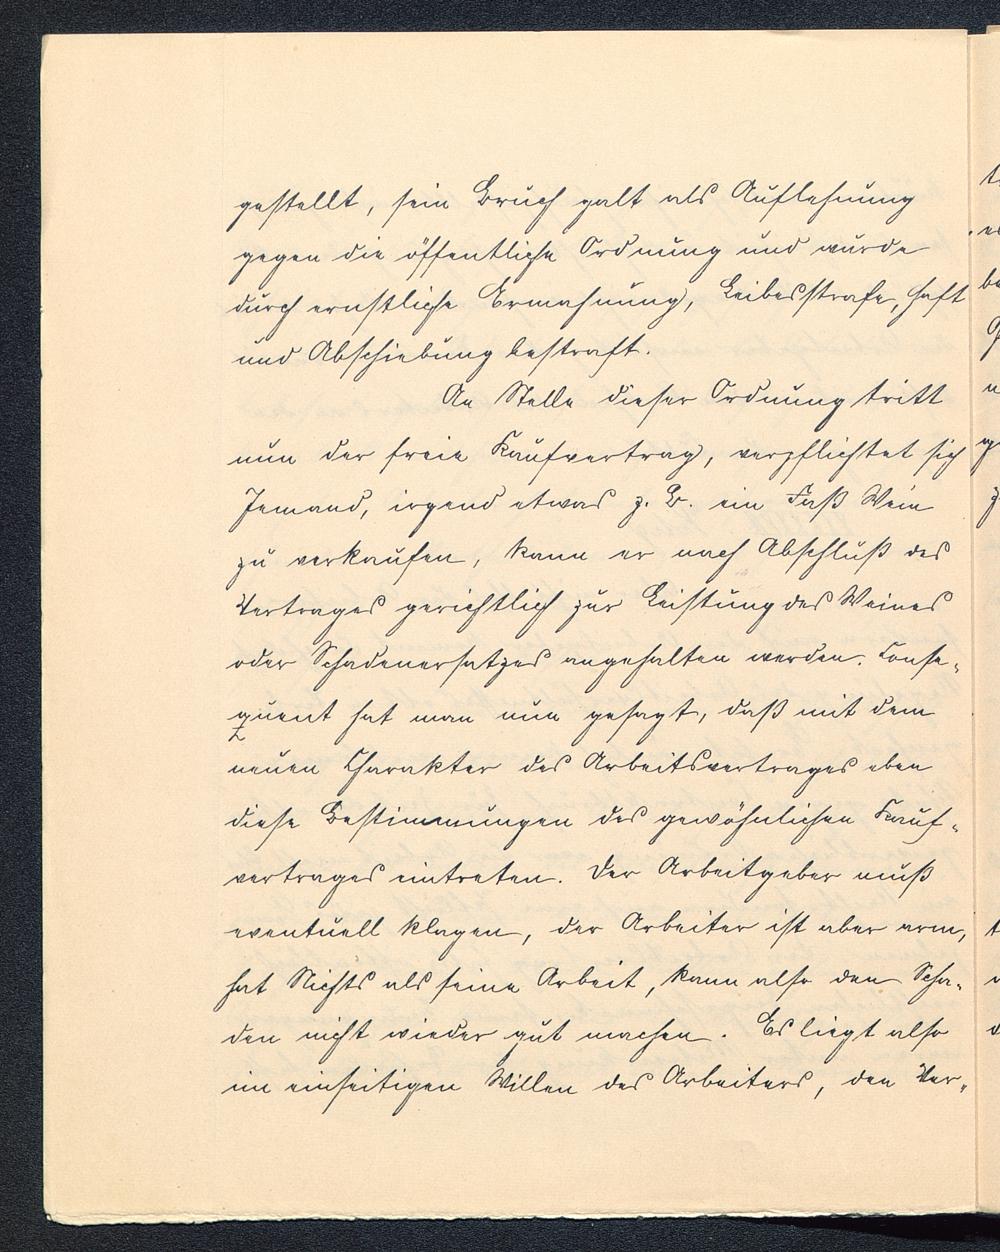 gestellt, sein Bruch galt als Auflehnung
gegen die öffentliche Ordnung und wurde
durch ernstliche Ermahnung, Leibesstrafe, Haft
und Abschiebung bestraft.
An Stelle dieser Ordnung tritt
nun der freie Kaufvertrag, verpflichtet sich
Jemand, irgend etwas z. B. ein Faß Wein
zu verkaufen, kann er nach Abschluß des
Vertrages gerichtlich zur Leistung des Weines
oder Schadenersatzes angehalten werden. Conse-
quent hat man nun gesagt, daß mit dem
neuen Charakter des Arbeitsvertrages eben
diese Bestimmungen des gewöhnlichen Kauf-
vertrages eintreten. Der Arbeitgeber muß
eventuell klagen, der Arbeiter ist aber arm,
hat Nichts als seine Arbeit, kann also den Scha-
den nicht wieder gut machen. Es liegt also
im einseitigen Willen des Arbeiters, den Ver-